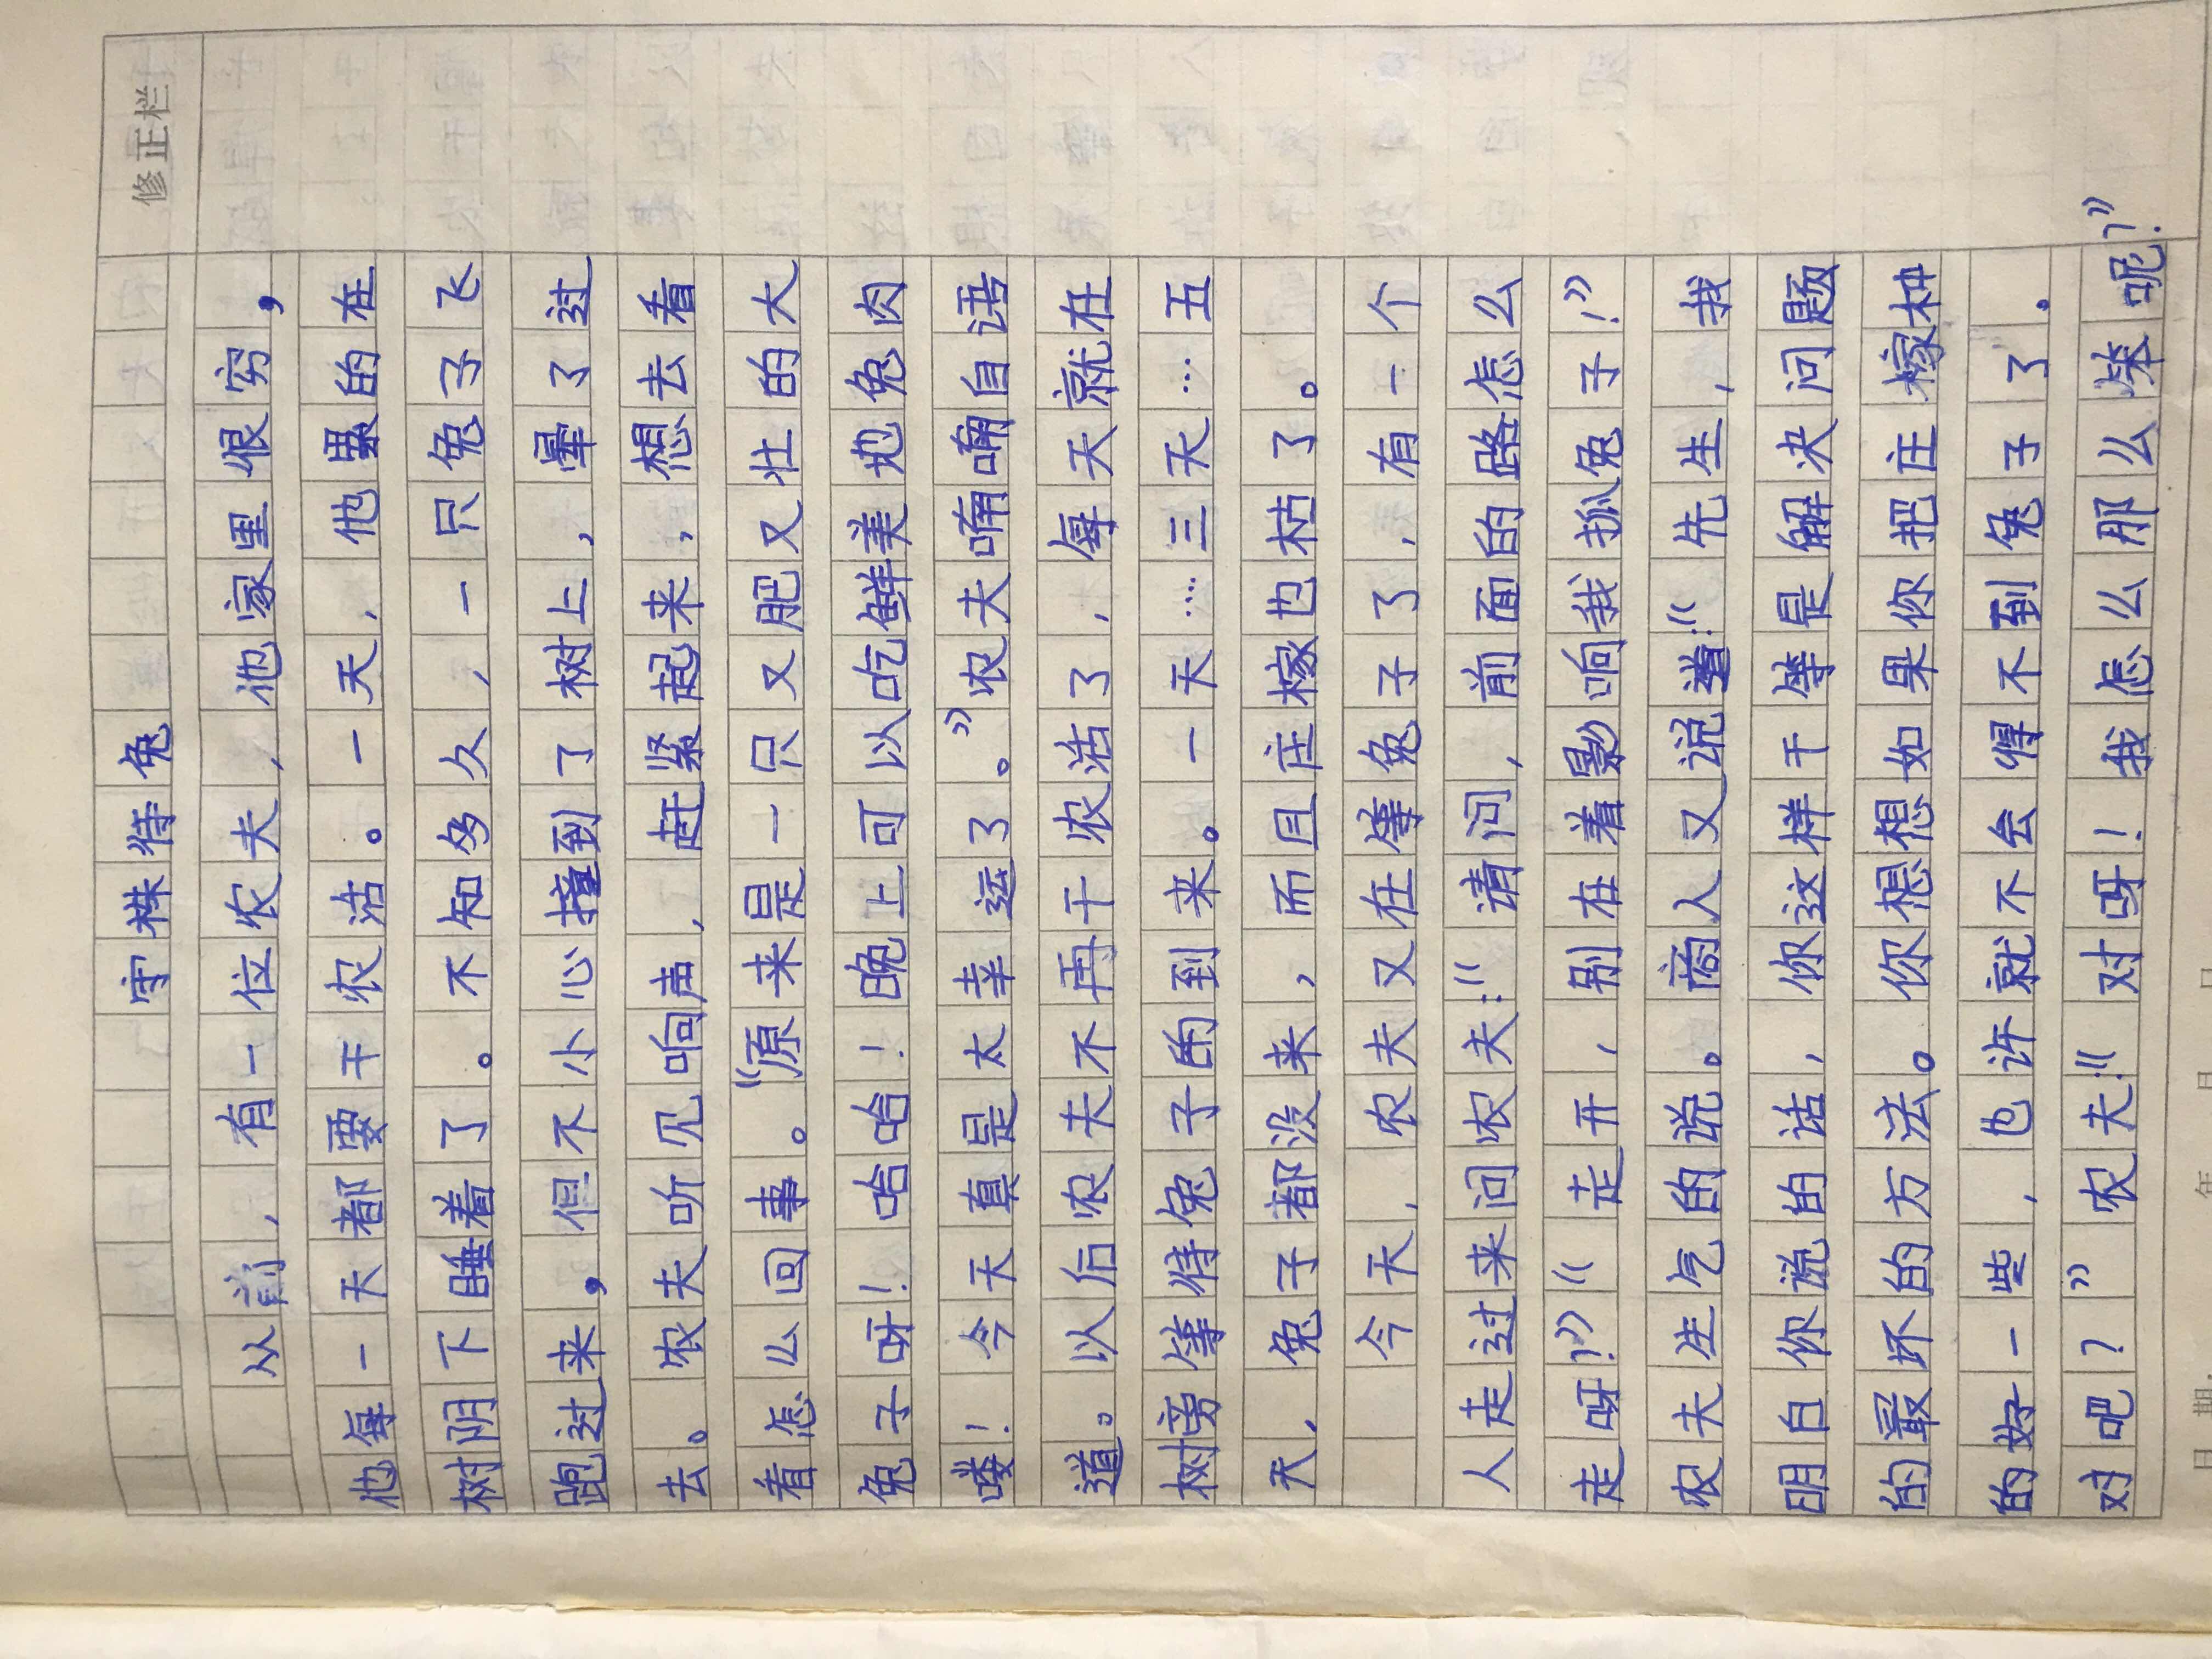 修正栏
守株待兔
从前，有一位农夫，他家里很穷，
他每一天都要干农活。一天，他累的在
树阴下睡着了。不知多久，一只兔子飞
跑过来，但不小心撞到了树上，晕了过
去。农夫听见响声，赶紧起来，想去看
看怎么回事。“原来是一只又肥又壮的大
兔子呀！哈哈！晚上可以吃鲜美地兔肉
喽！今天真是太幸运了。”农夫喃喃自语
道。以后农夫不再干农活了，每天就在
树旁等待兔子的到来。一天……三天…五
天，兔子都没来，而且庄稼也枯了。
今天，农夫又在等兔子了，有一个
人走过来问农夫：“请问，前面的路怎么
走呀？”“走开，别在着影响我抓兔子！”
农夫生气的说。商人又说道：“先生，我
明白你说的话，你这样干等是解决问题
的最坏的方法。你想想如果你把庄稼种
的好一些，也许就不会得不到兔子了。
对吧？”农夫：“对呀！我怎么那么笨呢？”
日期： 年 月 日